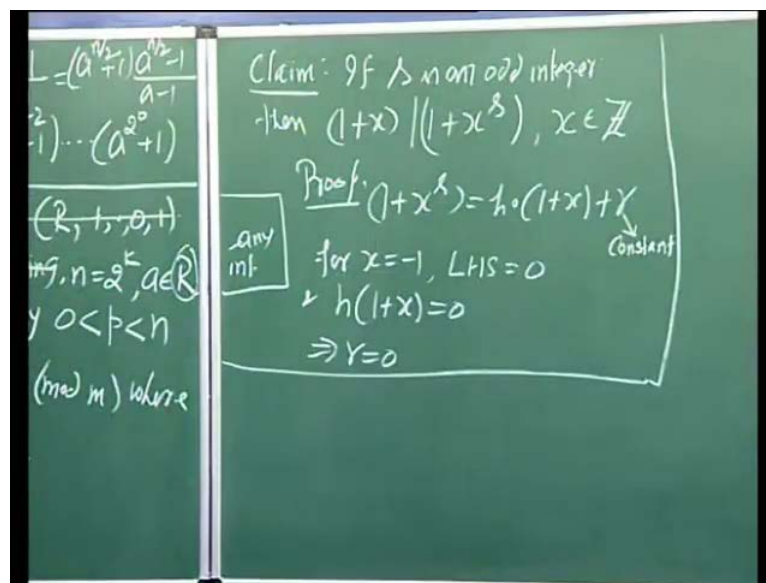 L = (a^{n/2}+1) \frac{a^{n/2}-1}{a-1}
-1) ⋯ (a^{2^0}+1)
(R, +, ·, 0, 1)
n=2^k, a∈R
0<p<n
(mod m) where
any
int.
Claim: If s is an odd integer
then (1+x) | (1+x^s), x∈ℤ
Proof: (1+x^s) = h·(1+x)+r
Constant
for x=-1, LHS=0
h(1+x)=0
⇒ r=0